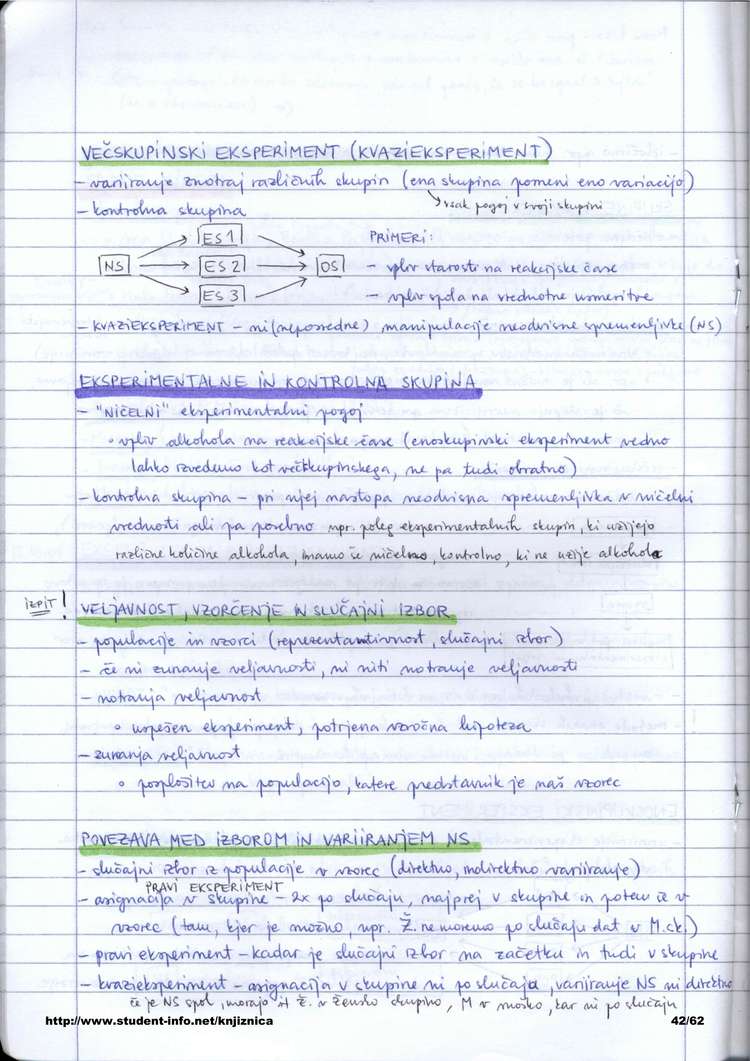 VEČSKUPINSKI EKSPERIMENT (KVAZIEKSPERIMENT)
- variiranje znotraj različnih skupin (ena skupina pomeni eno variacijo)
vsak pogoj v svoji skupini
- kontrolna skupina
NS
ES 1
ES 2
ES 3
OS
PRIMERI:
- vpliv starosti na reakcijske čase
- vpliv spola na vrednotne usmeritve
- KVAZIEKSPERIMENT - ni (neposredne) manipulacije neodvisne spremenljivke (NS)
EKSPERIMENTALNE IN KONTROLNA SKUPINA
- "NIČELNI" eksperimentalni pogoj
• vpliv alkohola na reakcijske čase (enoskupinski eksperiment vedno
lahko izvedemo kot večskupinskega, ne pa tudi obratno)
- kontrolna skupina - pri njej nastopa neodvisna spremenljivka v ničelni
vrednosti ali pa posebno npr. poleg eksperimentalnih skupin, ki uživjejo
različne količine alkohola, imamo še ničelno, kontrolno, ki ne užije alkohola
IZPIT !
VELJAVNOST, VZORČENJE IN SLUČAJNI IZBOR
- populacije in vzorci (reprezentantivnost, slučajni izbor)
- če ni zunanje veljavnosti, ni niti notranje veljavnosti
- notranja veljavnost
• uspešen eksperiment, potrjena vzročna hipoteza
- zunanja veljavnost
• posplošitev na populacijo, katere predstavnik je naš vzorec
POVEZAVA MED IZBOROM IN VARIIRANJEM NS
- slučajni izbor iz populacije v vzorec (direktno, indirektno variiranje)
PRAVI EKSPERIMENT
- asignacija v skupine - 2x po slučaju, najprej v skupine in potem še v
vzorec (tam, kjer je možno, npr. Ž. ne moremo po slučaju dat v M.sk.)
- pravi eksperiment - kadar je slučajni izbor na začetku in tudi v skupine
- kvazieksperiment - asignacija v skupine ni po slučaju, variiranje NS ni direktno
če je NS spol, morajo it Ž. v žensko skupino, M v moško, kar ni po slučaju
http://www.student-info.net/knjiznica
42/62